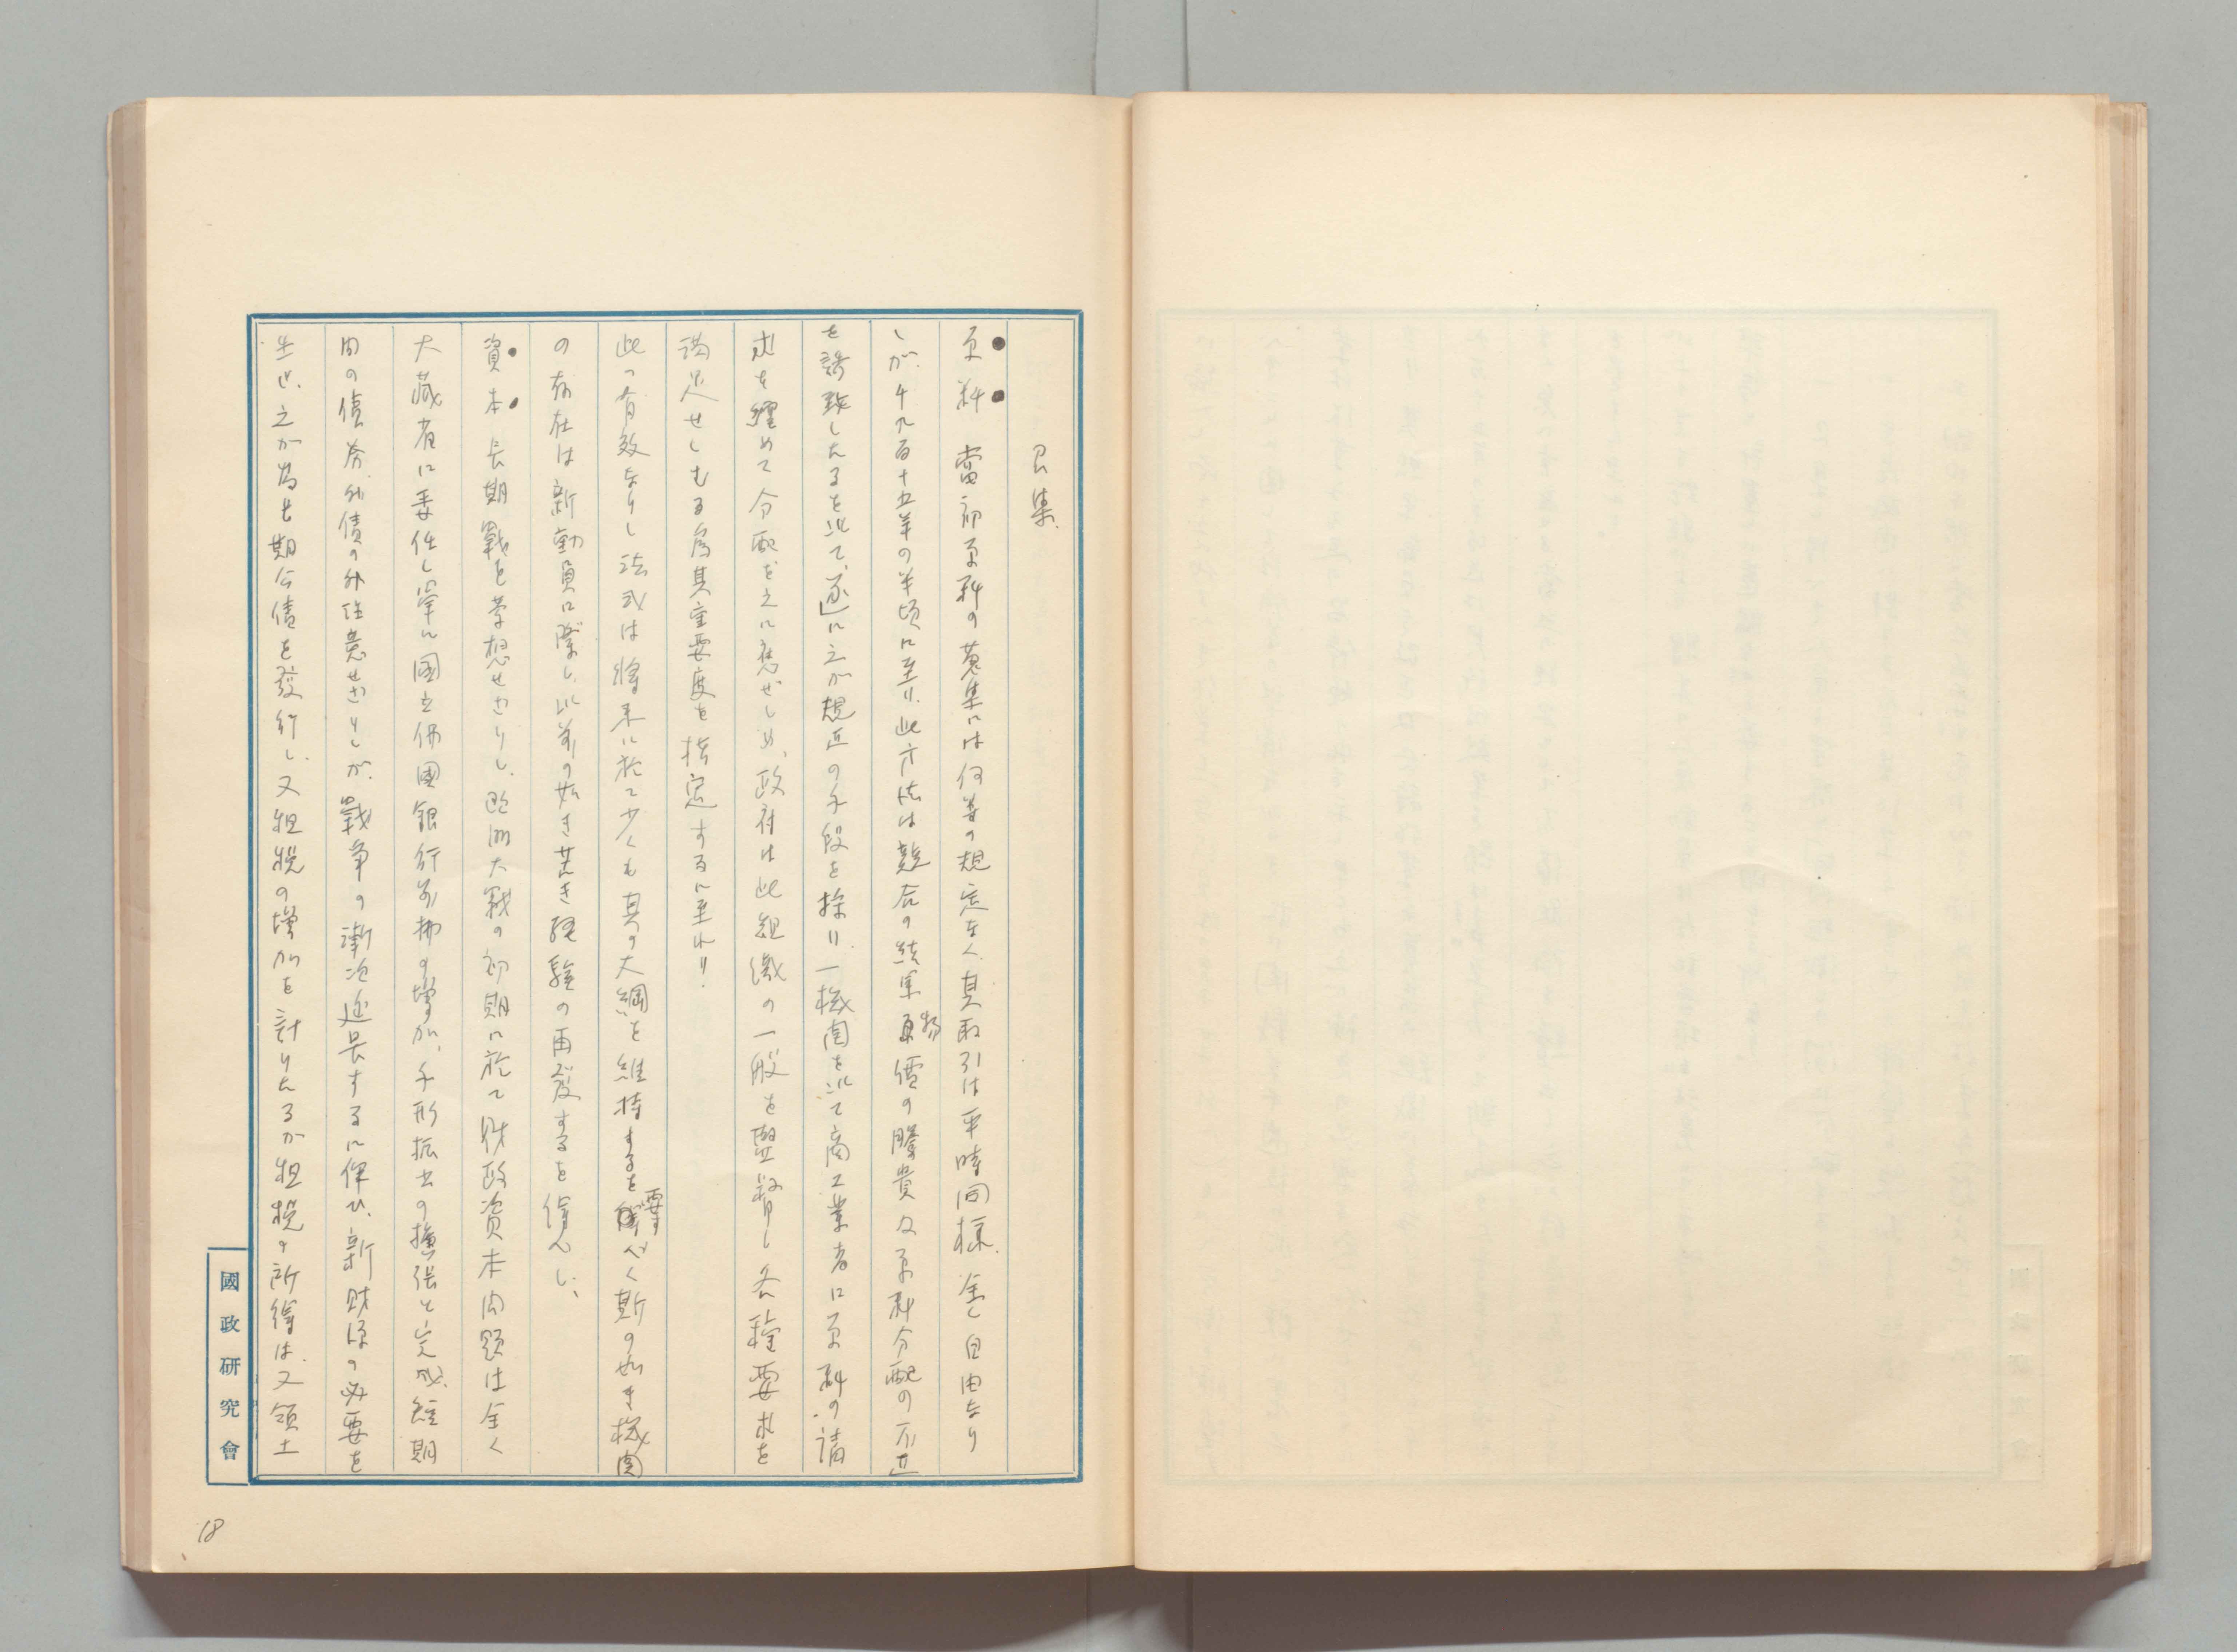 召集.
原料 當初原料の蒐集には何等の規定なく其取引は平時同様全く自由なり
しが千九百十五年の半頃に至り此方法は競合の結果物價の騰貴及原料分配の不正
を誘致したるを以て、遂に之が規正の手段を採り一機関を以て商工業者に原料の請
求を纏めて分配を之に應ぜしめ、政府は此組織の一般を監督し各種要求を
満足せしむる為其重要度を指定するに至れり.
此の有效なりし法式は将来に於て少くも其の大綱を維持するを要すべく斯の如き機関
の存在は新動員に際し以前の如き苦き経験の再度するを償へし、
資本 長期戰を夢想せざりし欧洲大戰の初期に於て財政資本問題は全く
大蔵省に委任し単に國立佛國銀行前拂の増加、手形振出の擴張と完成、短期
間の債券、外債の外注意せざりしが、戰争の漸次延長するに伴ひ、新財源の必要を
生ぜ、之が為長期公債を發行し、又租税の増加を計りたるが租税の所得は又領土
國政研究會
18